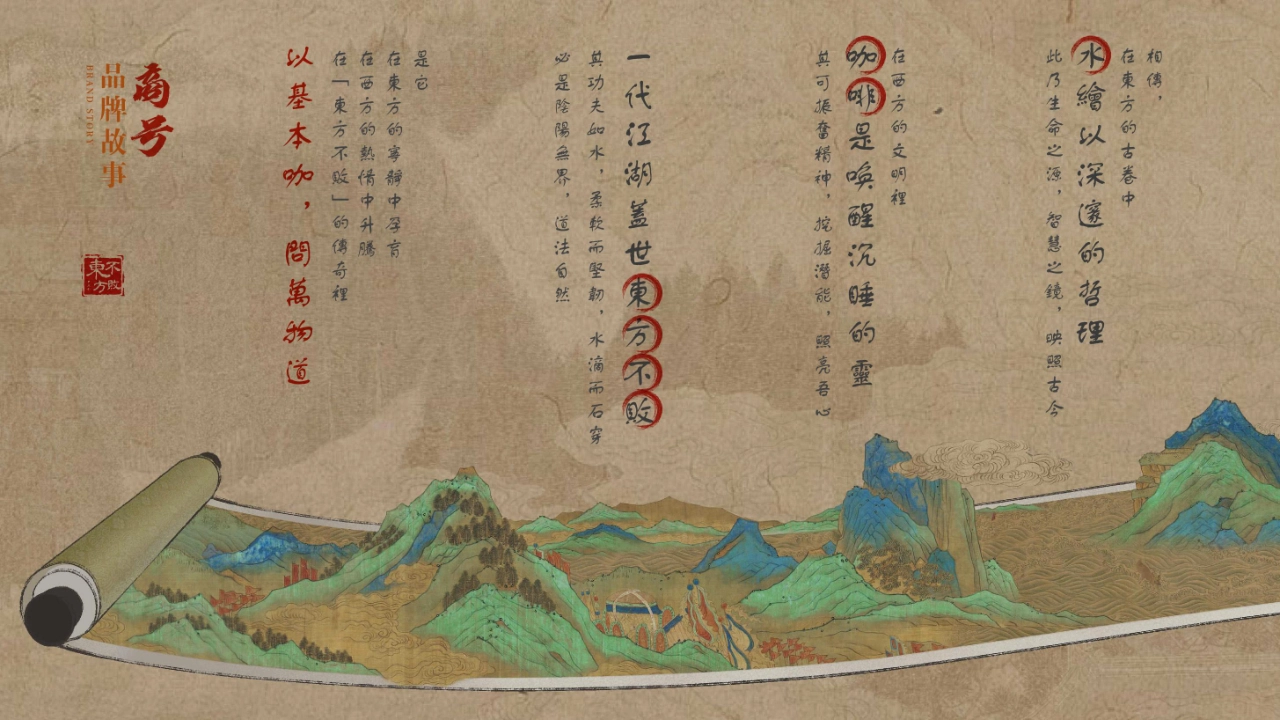 相傳，
在東方的古卷中
水繪以深邃的哲理
此乃生命之源，智慧之鏡，映照古今
在西方的文明裡
咖啡是喚醒沉睡的靈
其可振奮精神，挖掘潛能，照亮吾心
一代江湖蓋世東方不敗
其功夫如水，柔軟而堅韌，水滴而石穿
必是陰陽無界，道法自然
是它
在東方的寧靜中孕育
在西方的熱情中升騰
在「東方不敗」的傳奇裡
以基本咖，問萬物道
商号
品牌故事
BRAND STORY
不敗
東方